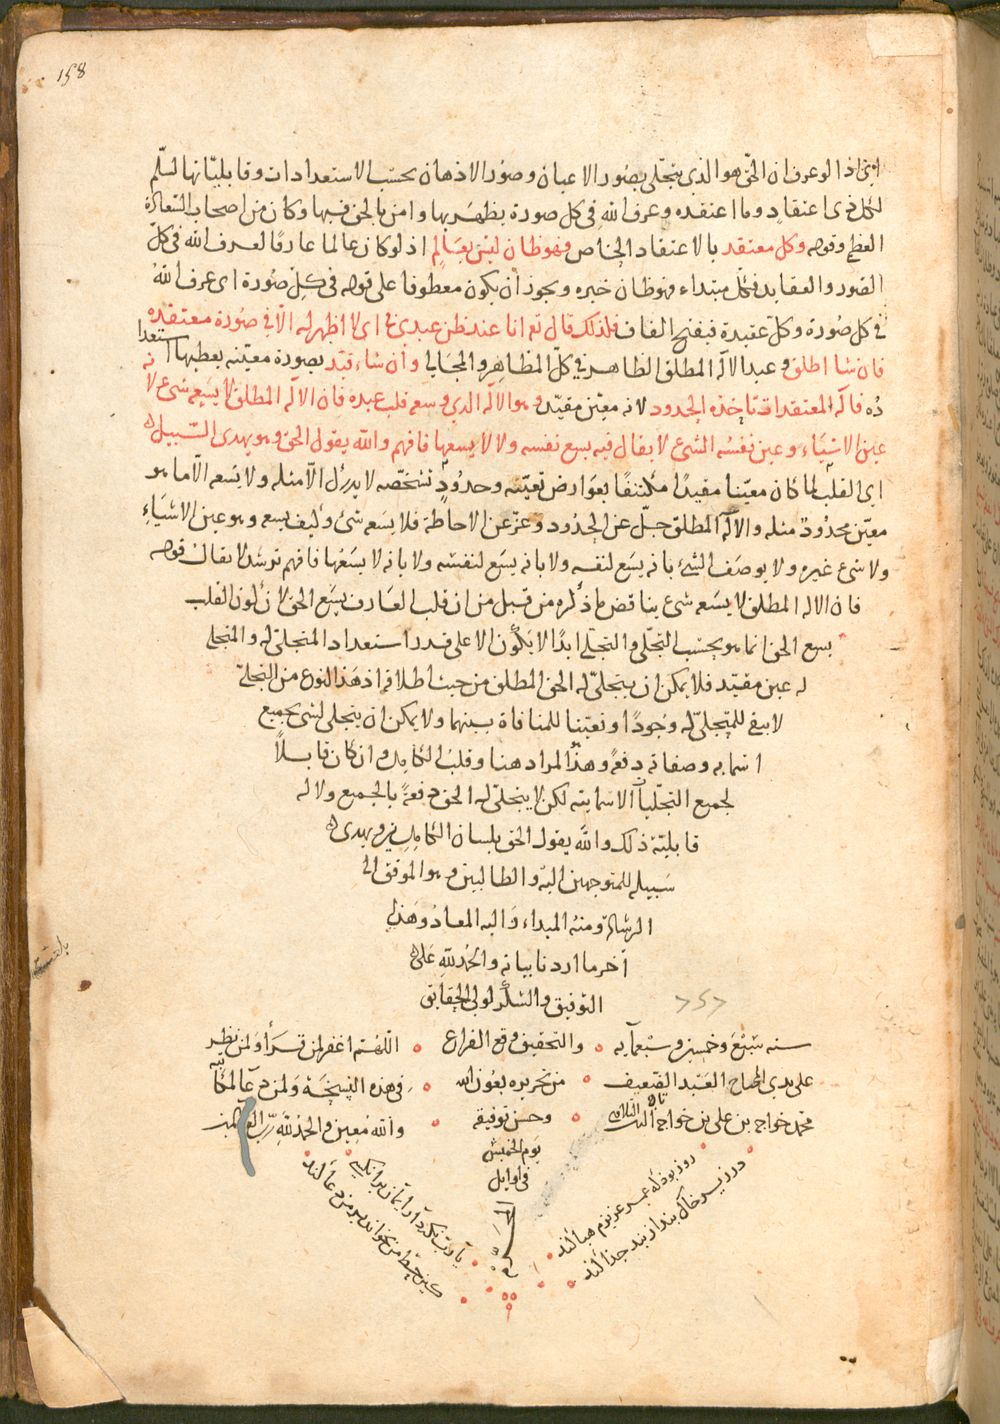 158
اي اذا لو عرف ان الحق هو الذي يتجلى بصور الاعيان وصور الاذهان بحسب الاستعدادات وقابلياتها لسلم
لكل ذي اعتقاد وما اعتقده وعرف الله في كل صورة يظهر بها وامن بالحق فيها وكان من اصحاب السعادة
العظمى وقوله وكل معتقد بالاعتقاد الخاص فهو ظان ليس بعالم اذ لو كان عالما عارفا لعرف الله في كل
الصور والعقايد فكل مبتداء فهو ظان خبره ويجوز ان يكون معطوفا على قوله في كل صورة اي عرف الله
في كل صورة وكل عقيدة فبفتح الفاف فلذلك قال تع انا عند ظن عبدي بي اي لا اظهر له الا في صورة معتقده
فان شا اطلق وعبد الاله المطلق الظاهر في كل المظاهر والمجالي وان شاء قيد بصورة معينه يعطيها استعدا
ده فاله المعتقدات تاخذه الحدود لانه معين مقيد وهو الاله الذي وسعه قلب عبده فان الاله المطلق لا يسعه شئ لانه
عين الاشياء وعين نفسه الشئ لا يقال فيه يسع نفسه ولا لا يسعها فافهم والله يقول الحق وهو يهدى السبيل
اي القلب لما كان معينا مقيدا مكتنفا بعوارض تعينه وحدود تشخصه لا يدرك الا مثله ولا يسعه الا ما هو
معين محدود مثله والاله المطلق جل عن الحدود وعز عن الاحاطة فلا يسعه شئ وكيف يسعه وهو عين الاشياء
ولا شئ غيره ولا يوصف الشئ بانه يسع لنفسه ولا بانه يسع لنفسه ولا بانه لا يسعها فافهم ترشد لا يقال قوله
فان الاله المطلق لا يسعه شئ يناقض ما ذكره من قبل من ان قلب العارف يسع الحق لان كون القلب
يسع الحق انما هو بحسب التجلى والتجلى ابدا لا يكون الا على قدر استعداد المتجلى له والمتجلى
له عين مقيد فلا يمكن ان يتجلى له الحق المطلق من حيث اطلاقه اذ هذا النوع من التجلى
لا يبقى للمتجلى له وجودا وتعينا للمنافاة بينهما ولا يمكن ان يتجلى لشئ بجميع
اسمايه وصفاته دفعة وهذا المراد هنا وقلب الكامل وان كان قابلا
لجميع التجليات الاسمايية لكن لا يتجلى له الحق دفعة بالجميع ولا له
قابلية ذلك والله يقول الحق بلسان الكاملين ويهدى
سبيله للمتوجهين اليه والطالبين وهو الموفق الى
الرشاد ومنه المبداء واليه المعاد وهذا
آخر ما اردنا بيانه والحمد لله على
التوفيق والشكر لولى الحقايق
والتحقيق وقع الفراغ
من تحريره بعون الله
وحسن توفيقه
يوم الخميس
في اوايل
سنه سبع وخمسين وسبعمايه
على يدى المحتاج العبد الضعيف
محمد خواجه بن على بن خواجه
اللهم اغفر لمن قرأ ولمن نظر
في هذه النسخة ولمن دعا لكاتبه
والله معين والحمد لله رب العالمين